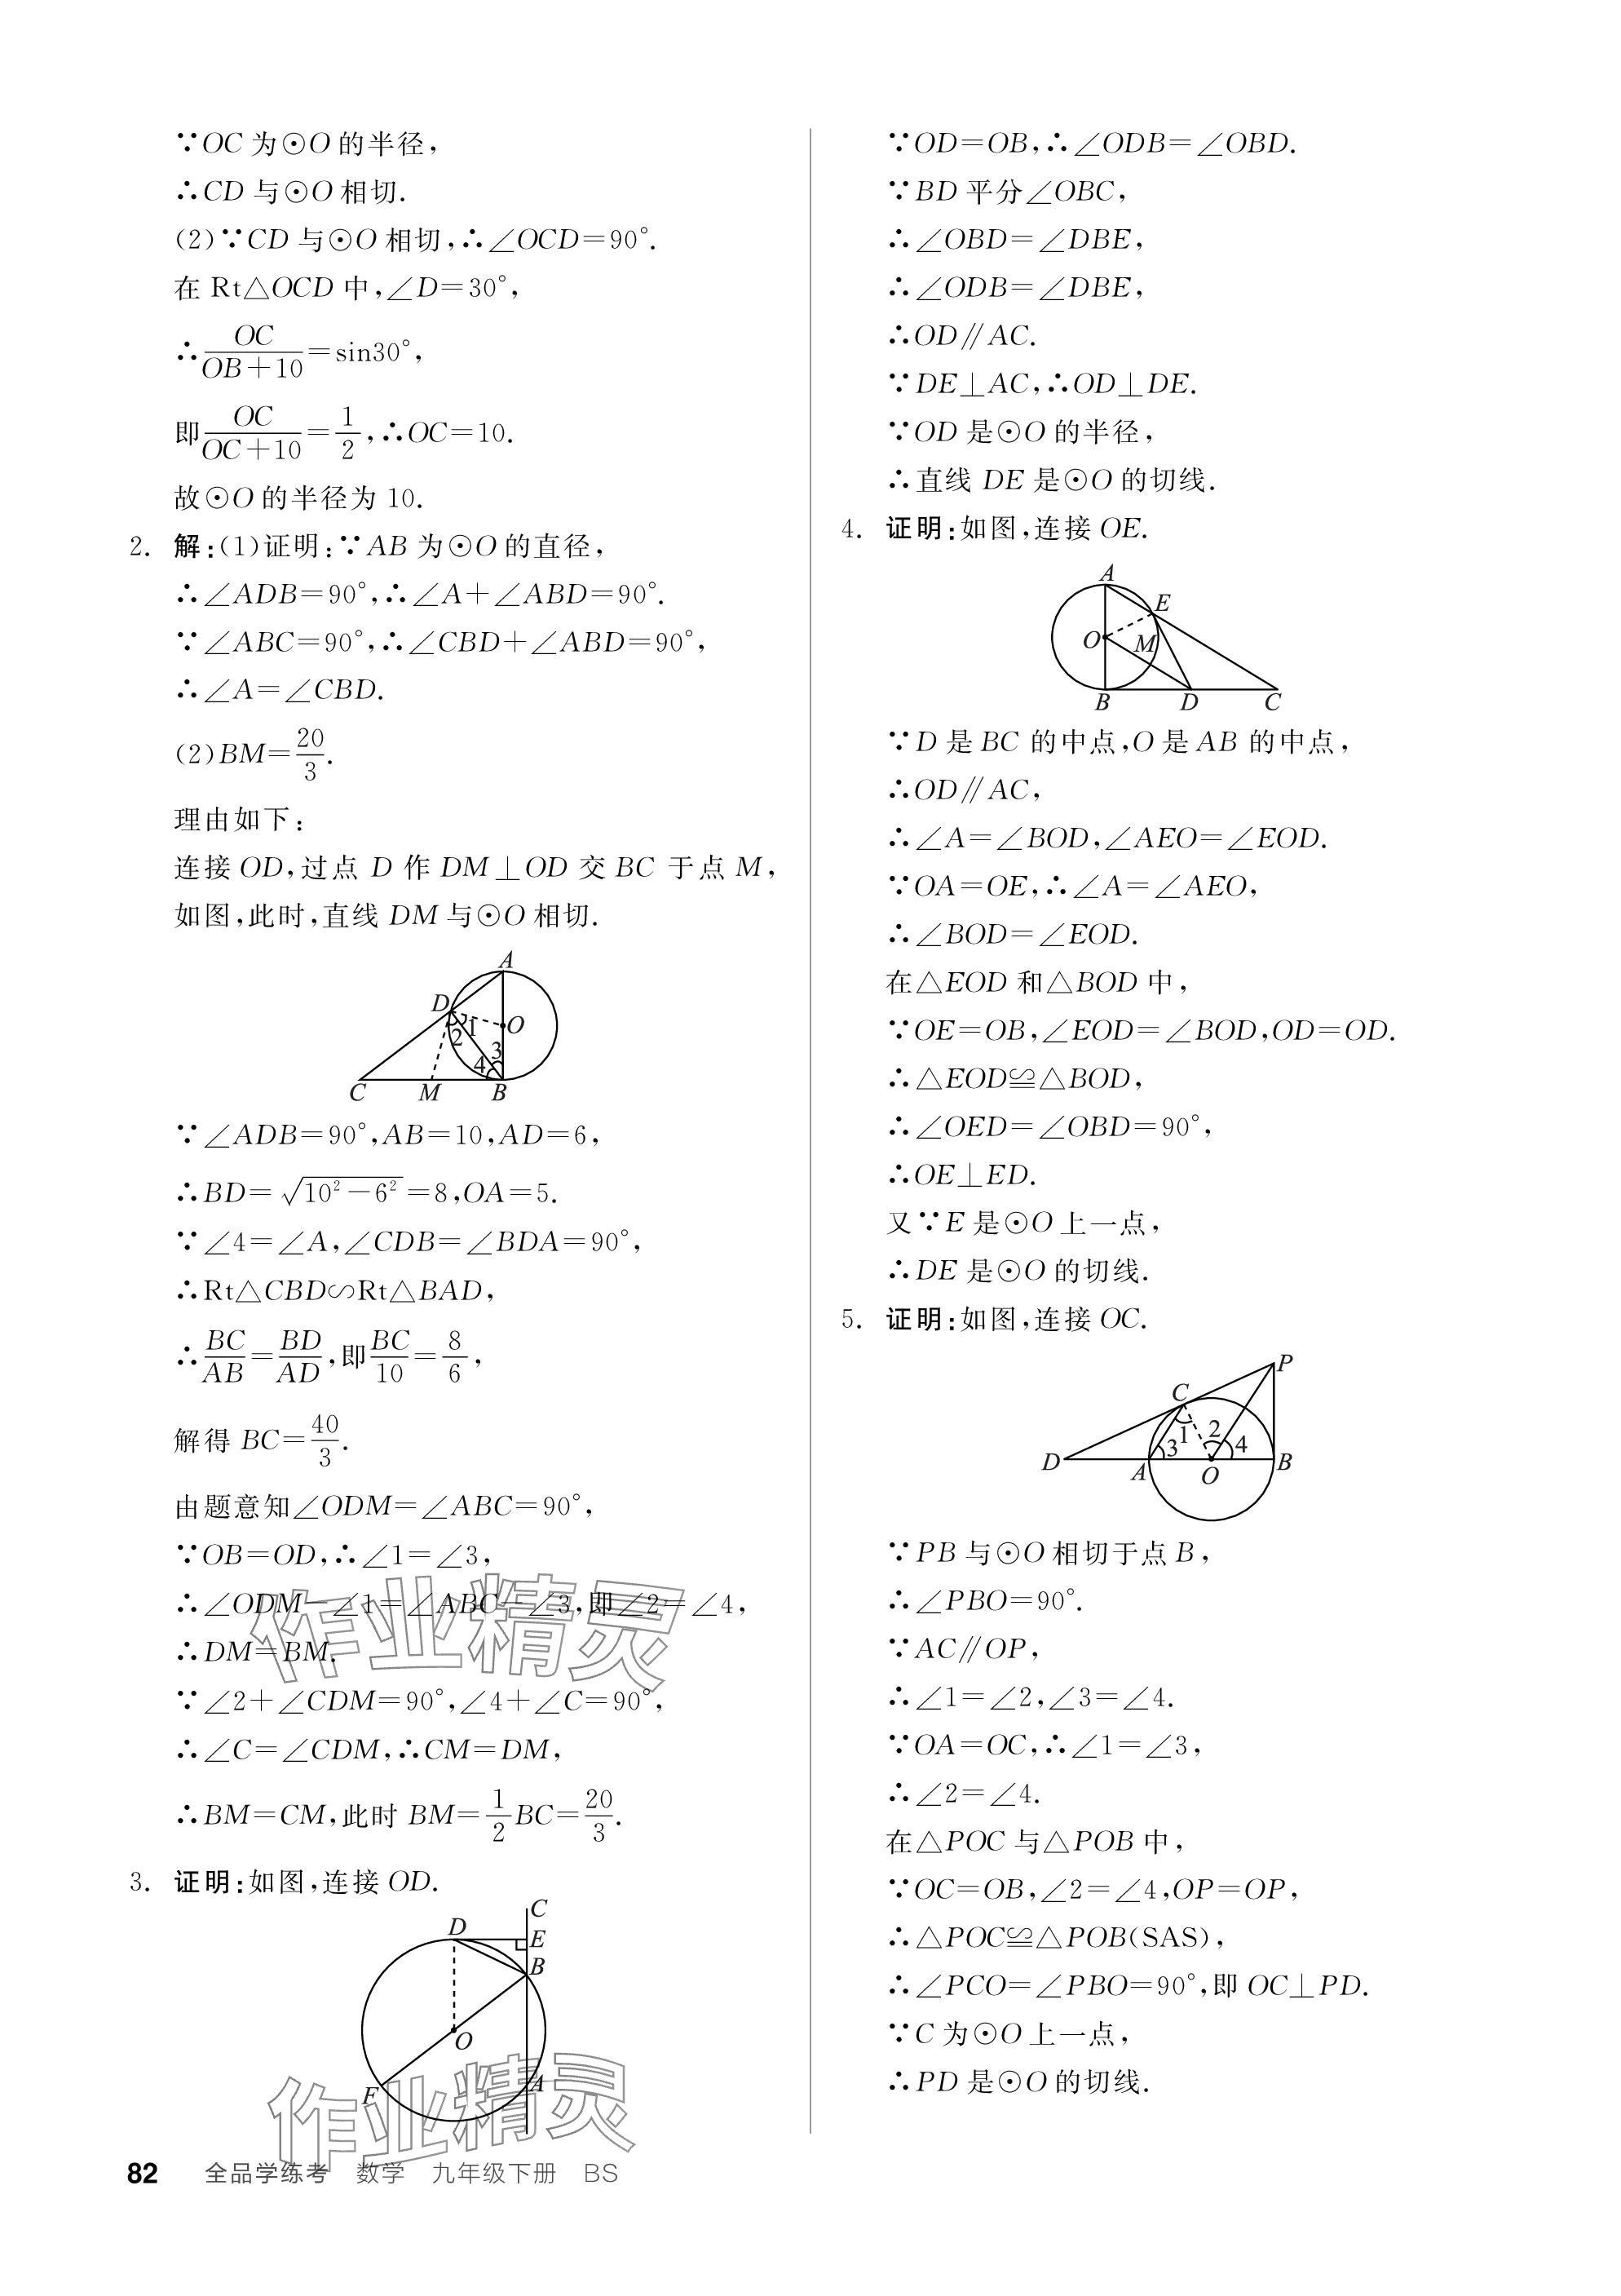 ∵OC为⊙O的半径，
∴CD与⊙O相切.
(2)∵CD与⊙O相切，∴∠OCD=90°.
在Rt△OCD中，∠D=30°，
∴OC/(OB+10)=sin30°，
即OC/(OC+10)=1/2，∴OC=10.
故⊙O的半径为10.
2. 解：(1)证明：∵AB为⊙O的直径，
∴∠ADB=90°，∴∠A+∠ABD=90°.
∵∠ABC=90°，∴∠CBD+∠ABD=90°，
∴∠A=∠CBD.
(2)BM=20/3.
理由如下：
连接OD，过点D作DM⊥OD交BC于点M，
如图，此时，直线DM与⊙O相切.
A
D
1
O
2
3
4
C M B
∵∠ADB=90°，AB=10，AD=6，
∴BD=√(10²-6²)=8，OA=5.
∵∠4=∠A，∠CDB=∠BDA=90°，
∴Rt△CBD∽Rt△BAD，
∴BC/AB=BD/AD，即BC/10=8/6，
解得BC=40/3.
由题意知∠ODM=∠ABC=90°，
∵OB=OD，∴∠1=∠3，
∴∠ODM-∠1=∠ABC-∠3，即∠2=∠4，
∴DM=BM.
∵∠2+∠CDM=90°，∠4+∠C=90°，
∴∠C=∠CDM，∴CM=DM，
∴BM=CM，此时BM=1/2BC=20/3.
3. 证明：如图，连接OD.
C
D
E
B
O
F
A
作业精灵
作业精灵
∵OD=OB，∴∠ODB=∠OBD.
∵BD平分∠OBC，
∴∠OBD=∠DBE，
∴∠ODB=∠DBE，
∴OD∥AC.
∵DE⊥AC，∴OD⊥DE.
∵OD是⊙O的半径，
∴直线DE是⊙O的切线.
4. 证明：如图，连接OE.
A
E
O M
B D C
∵D是BC的中点，O是AB的中点，
∴OD∥AC，
∴∠A=∠BOD，∠AEO=∠EOD.
∵OA=OE，∴∠A=∠AEO，
∴∠BOD=∠EOD.
在△EOD和△BOD中，
∵OE=OB，∠EOD=∠BOD，OD=OD.
∴△EOD≌△BOD，
∴∠OED=∠OBD=90°，
∴OE⊥ED.
又∵E是⊙O上一点，
∴DE是⊙O的切线.
5. 证明：如图，连接OC.
P
C
1 2
3 4
D A O B
∵PB与⊙O相切于点B，
∴∠PBO=90°.
∵AC∥OP，
∴∠1=∠2，∠3=∠4.
∵OA=OC，∴∠1=∠3，
∴∠2=∠4.
在△POC与△POB中，
∵OC=OB，∠2=∠4，OP=OP，
∴△POC≌△POB(SAS)，
∴∠PCO=∠PBO=90°，即OC⊥PD.
∵C为⊙O上一点，
∴PD是⊙O的切线.
82 全品学练考 数学 九年级下册 BS